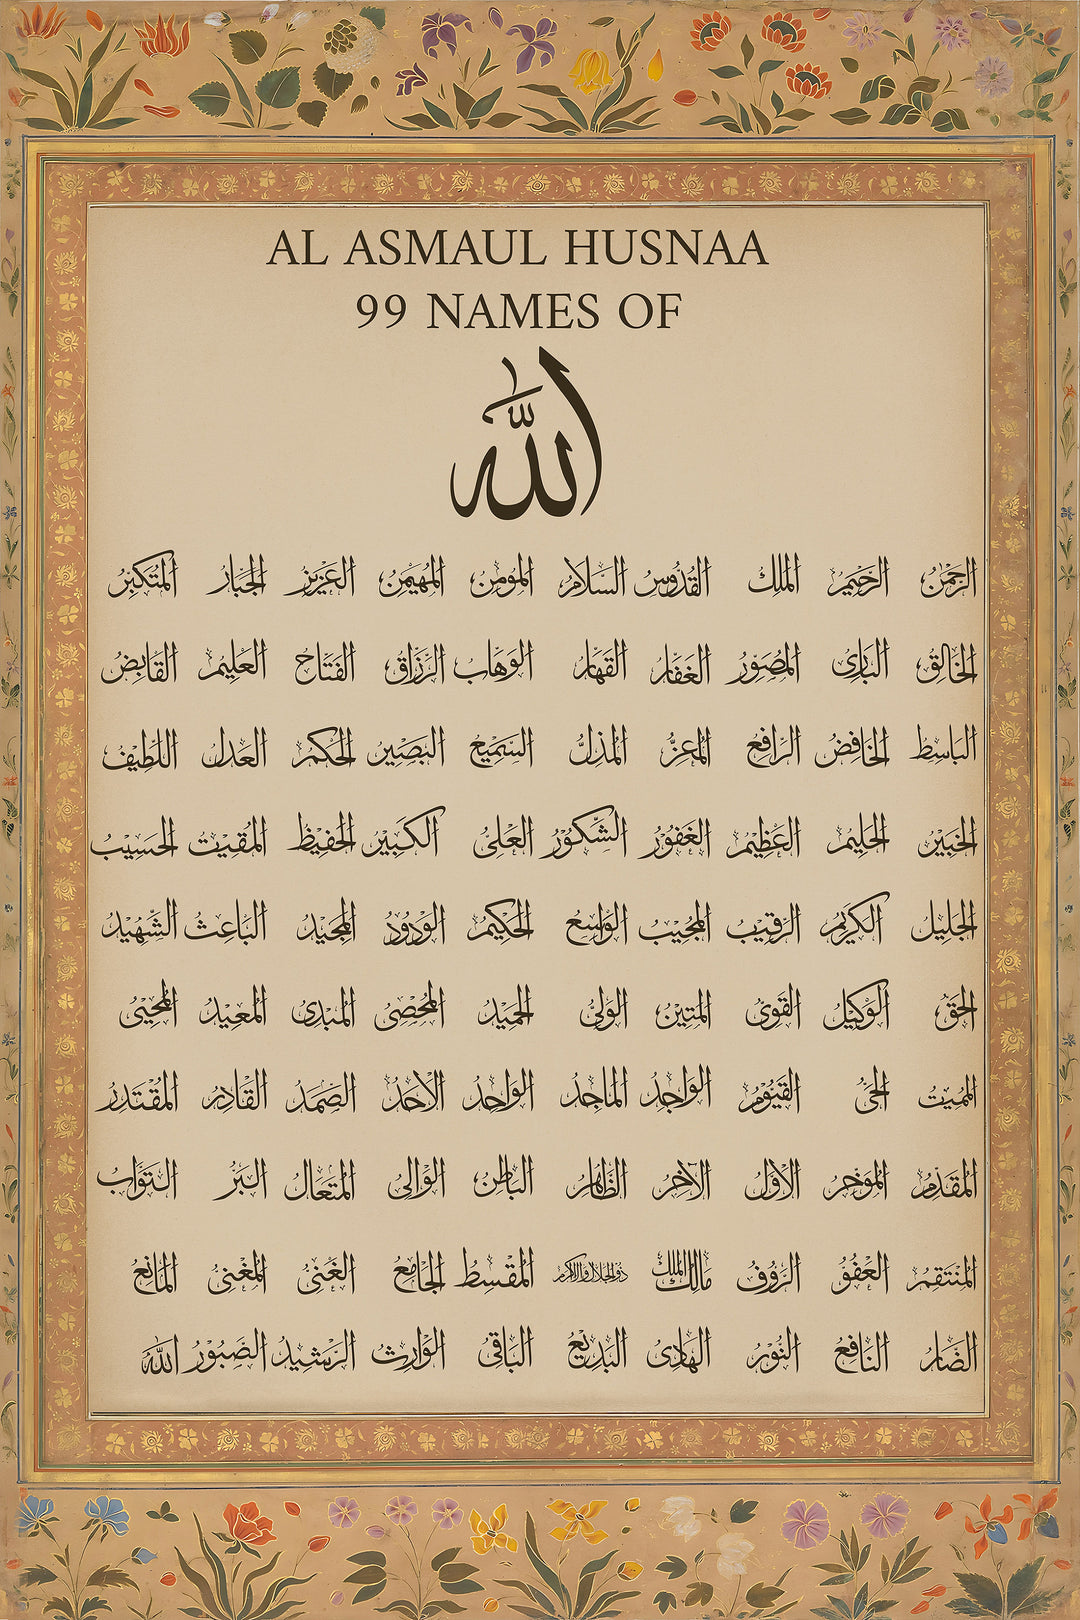 AL ASMAUL HUSNAA
99 NAMES OF
الله
الرحمن الرحيم الملك القدوس السلام المؤمن المهيمن العزيز الجبار المتكبر
الخالق البارئ المصور الغفار القهار الوهاب الرزاق الفتاح العليم القابض
الباسط الخافض الرافع المعز المذل السميع البصير الحكم العدل اللطيف
الخبير الحليم العظيم الغفور الشكور العلي الكبير الحفيظ المقيت الحسيب
الجليل الكريم الرقيب المجيب الواسع الحكيم الودود المجيد الباعث الشهيد
الحق الوكيل القوى المتين الولى الحميد المحصى المبدئ المعيد المحيى
المميت الحى القيوم الواجد الماجد الواحد الأحد الصمد القادر المقتدر
المقدم المؤخر الأول الآخر الظاهر الباطن الوالى المتعال البر التواب
المنتقم العفو الرؤوف مالك الملك ذو الجلال والإكرام المقسط الجامع الغنى المغنى المانع
الضار النافع النور الهادى البديع الباقى الوارث الرشيد الصبور الله